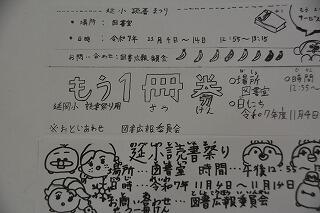 延小 読書まつり
・場所：図書室
・日時：令和7年 11月4日〜14日 12:55〜13:15
お問い合わせ：図書広報委員会
もう1冊券
さつ
けん
延岡小 読書祭り用
◎場所
図書室
◎日にち
令和7年度11月4日
◎時間
12:55〜
※おといあわせ 図書広報委員会
延小読書祭り
場所…図書室 時間…午後12:55
日時…令和7年 11月4日〜11月14日
お問い合わせ…図書広報委員会